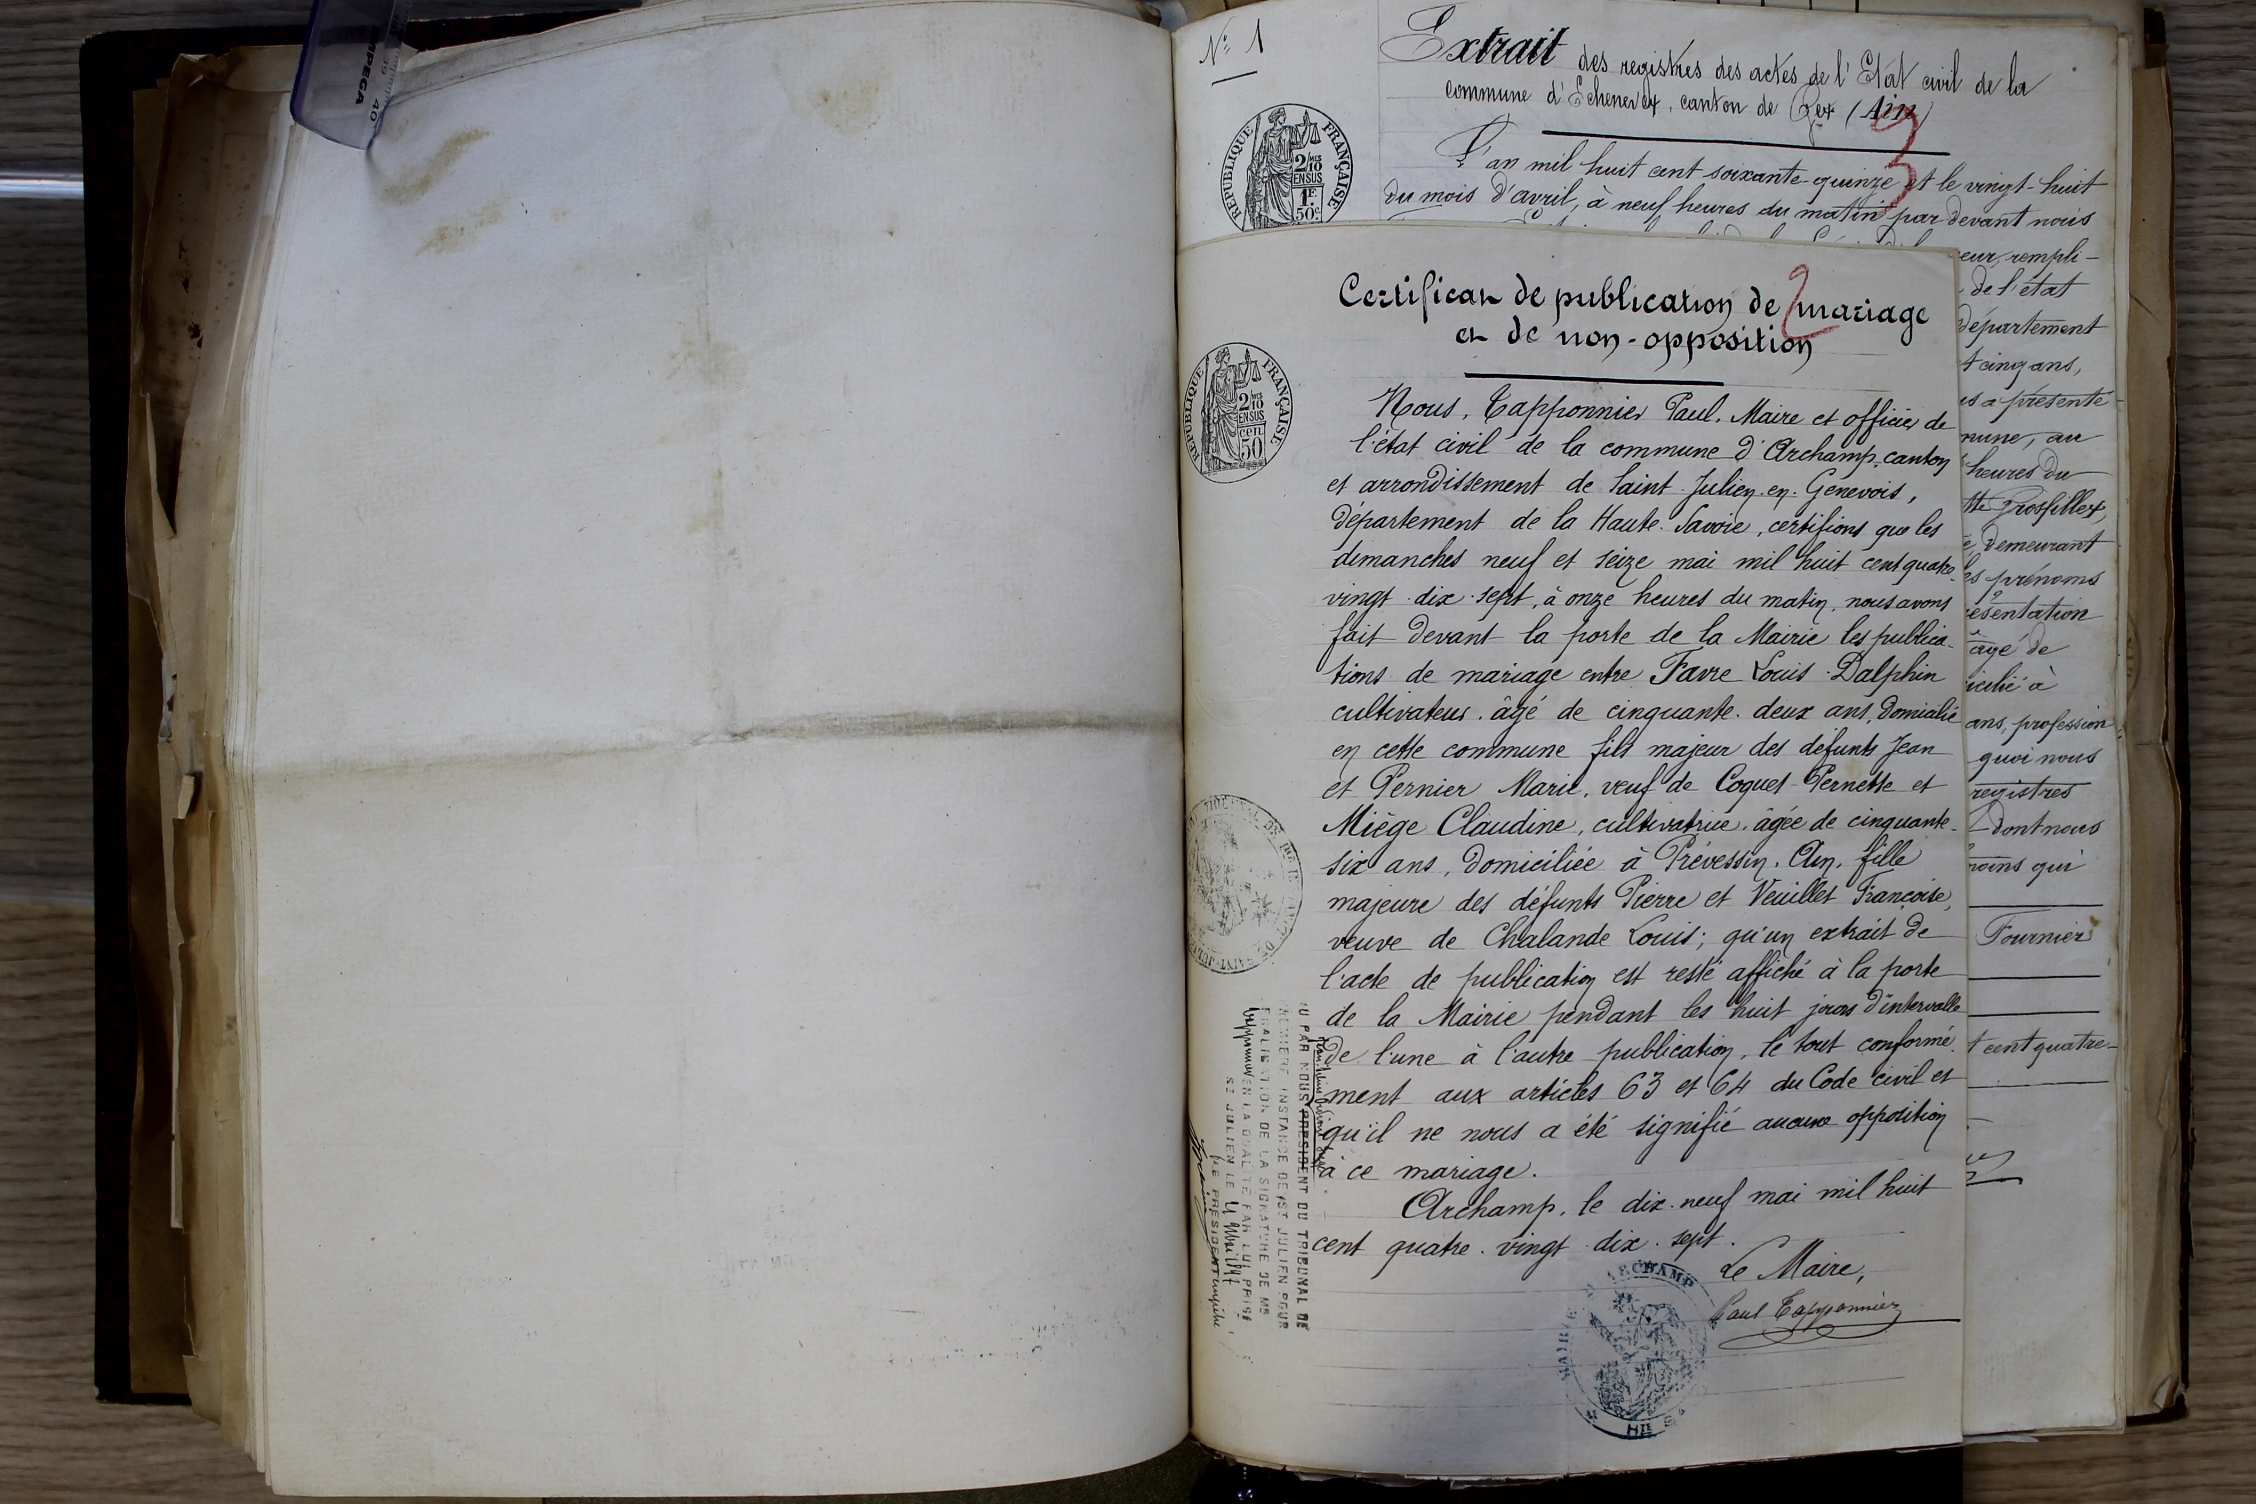 N° 1
Extrait des registres des actes de l'Etat civil de la
commune d'Echenevex, canton de Gex (Ain)
3
L'an mil huit cent soixante-quinze et le vingt-huit
du mois d'avril, à neuf heures du matin par devant nous
RÉPUBLIQUE FRANÇAISE
2/10 MES
EN SUS
1F
50c
eur, rempli-
de l'état
département
t cinq ans,
s a présenté
mune, au
heures du
tte Grosfillex,
e, demeurant
es prénoms
résentation
âgé de
icilié à
ans, profession
quoi nous
registres
dont nous
moins qui
Fournier
t cent quatre-
2
Certificat de publication de mariage
et de non-opposition
RÉPUBLIQUE FRANÇAISE
2/10 MES
EN SUS
cen
50
Nous, Tapponnier Paul, Maire et officier de
l'état civil de la commune d'Archamp, canton
et arrondissement de Saint-Julien-en-Genevois,
département de la Haute-Savoie, certifions que les
dimanches neuf et seize mai mil huit cent quatre-
vingt-dix-sept, à onze heures du matin, nous avons
fait devant la porte de la Mairie les publica-
tions de mariage entre Favre Louis-Dalphin
cultivateur, âgé de cinquante-deux ans, domicilié
en cette commune fils majeur des défunts Jean
et Pernier Marie, veuf de Coquet Pernette et
Miège Claudine, cultivatrice, âgée de cinquante-
six ans, domiciliée à Prévessin, Ain, fille
majeure des défunts Pierre et Veuillet Françoise,
veuve de Chalande Louis; qu'un extrait de
l'acte de publication est resté affiché à la porte
de la Mairie pendant les huit jours d'intervalle
de l'une à l'autre publication, le tout conformé-
ment aux articles 63 et 64 du Code civil et
qu'il ne nous a été signifié aucune opposition
à ce mariage.
Archamp, le dix-neuf mai mil huit
cent quatre-vingt-dix-sept.
Le Maire,
Paul Tapponnier
ARCHAMP
MAIRIE
Hte
U PAR NOUS PRESIDENT DU TRIBUNAL DE
PREMIERE INSTANCE DE ST JULIEN POUR
LEGALISATION DE LA SIGNATURE DE MR
Tapponnier EN LA QUALITE PAR LUI PRISE
ST JULIEN LE 21 Mai 1897
LE PRESIDENT empêché